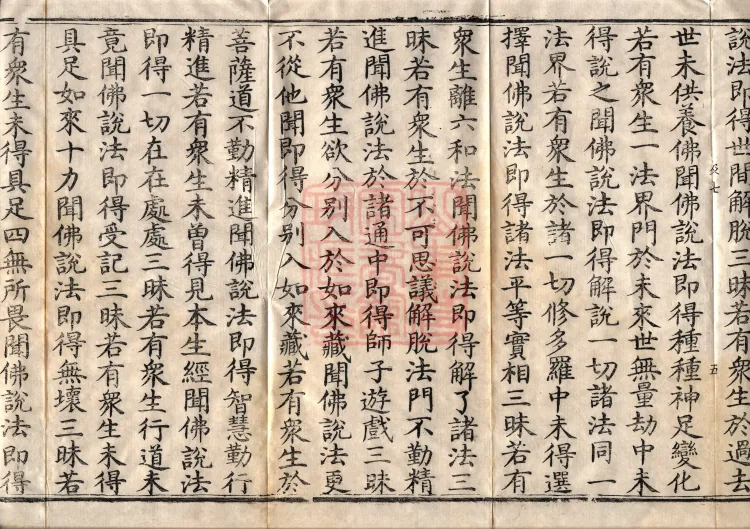 說法即得世間解脫三昧若有眾生於過去
世未供養佛聞佛說法即得種種神足變化
若有眾生一法界門於未來世無量劫中未
得說之聞佛說法即得解說一切諸法同一
法界若有眾生於諸一切修多羅中未得選
擇聞佛說法即得諸法平等實相三昧若有
眾生離六和法聞佛說法即得解了諸法三
昧若有眾生於不可思議解脫法門不勤精
進聞佛說法於諸通中即得師子遊戲三昧
若有眾生欲分別入於如來藏聞佛說法更
不從他聞即得分別入如來藏若有眾生於
菩薩道不勤精進聞佛說法即得智慧勤行
精進若有眾生未曾得見本生經聞佛說法
即得一切在在處處三昧若有眾生行道未
竟聞佛說法即得受記三昧若有眾生未得
具足如來十力聞佛說法即得無壞三昧若
有眾生未得具足四無所畏聞佛說法即得
五